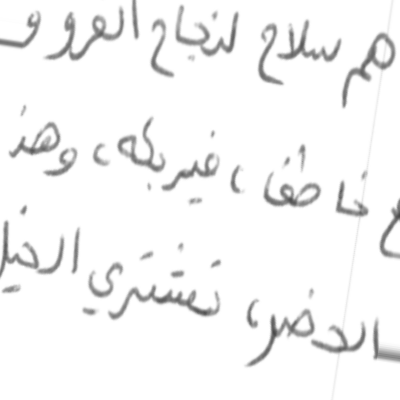 هم سلاح لنجاح الغزو و
خاطف، فيربكه، وهذ
الحضر، تشتري الخيل